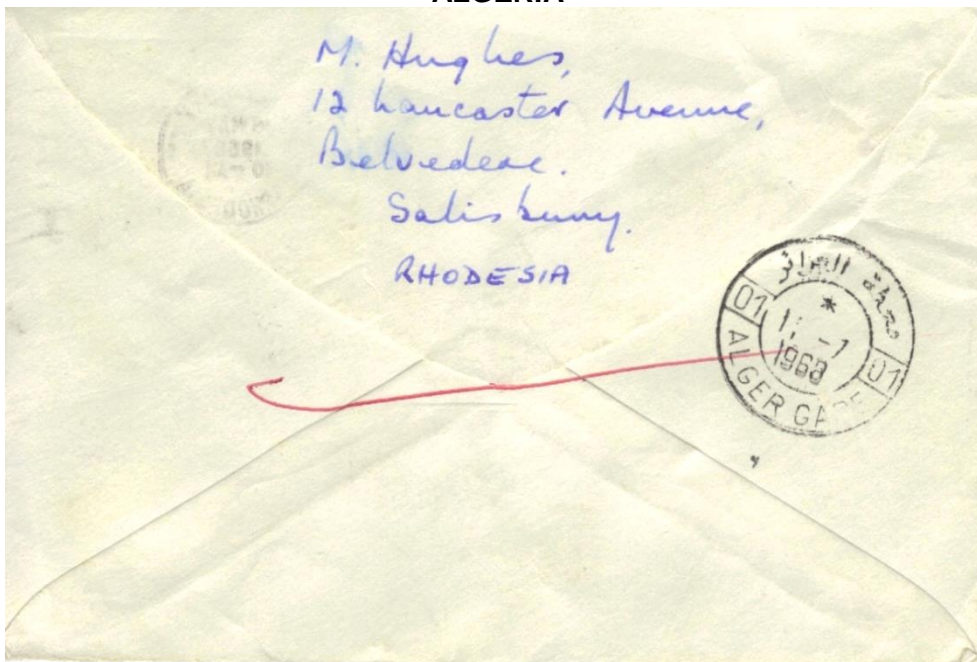 ALGERIA
M. Hughes,
12 Lancaster Avenue,
Belvedere.
Salisbury.
RHODESIA
محطة الجزائر
01
*
1968
01
ALGER GARE